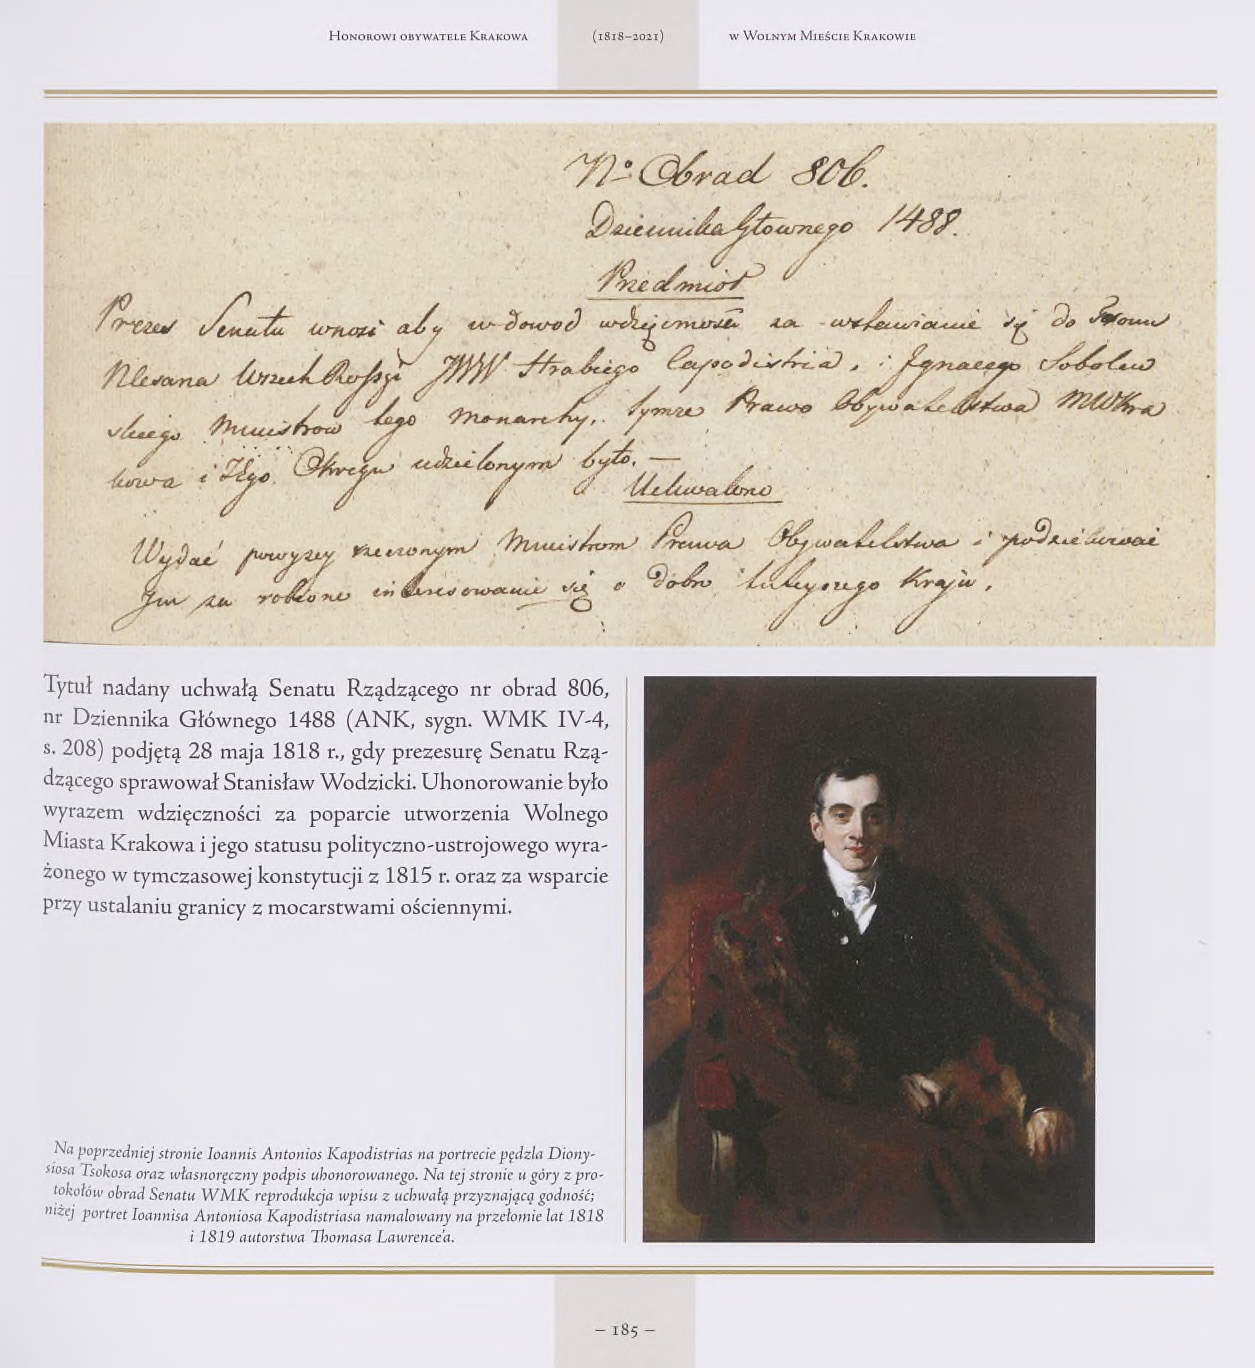 Honorowi obywatele Krakowa (1818–2021) w Wolnym Mieście Krakowie
No Obrad 806.
Dziennika Głownego 1488.
Przedmiot
Prezes Senatu wnosi aby w dowod wdzięczności za wstawianie się do Tronu
Wszech Rossyi JWW Hrabiego Capodistria, i Ignacego Sobolew
skiego Ministrow tego Monarchy, tymże Prawo Obywatelstwa MWKra
kowa i Jego Okręgu udzielonym było. —
Uchwalono
Wydać powyżey rzeczonym Ministrom Prawa Obywatelstwa i podziękować
Im za robione interesowanie się o dobro tuteyszego Kraju.
Tytuł nadany uchwałą Senatu Rządzącego nr obrad 806,
nr Dziennika Głównego 1488 (ANK, sygn. WMK IV-4,
s. 208) podjętą 28 maja 1818 r., gdy prezesurę Senatu Rzą-
dzącego sprawował Stanisław Wodzicki. Uhonorowanie było
wyrazem wdzięczności za poparcie utworzenia Wolnego
Miasta Krakowa i jego statusu polityczno-ustrojowego wyra-
żonego w tymczasowej konstytucji z 1815 r. oraz za wsparcie
przy ustalaniu granicy z mocarstwami ościennymi.
Na poprzedniej stronie Ioannis Antonios Kapodistrias na portrecie pędzla Diony-
siosa Tsokosa oraz własnoręczny podpis uhonorowanego. Na tej stronie u góry z pro-
tokołów obrad Senatu WMK reprodukcja wpisu z uchwałą przyznającą godność;
niżej portret Ioannisa Antoniosa Kapodistriasa namalowany na przełomie lat 1818
i 1819 autorstwa Thomasa Lawrence'a.
– 185 –